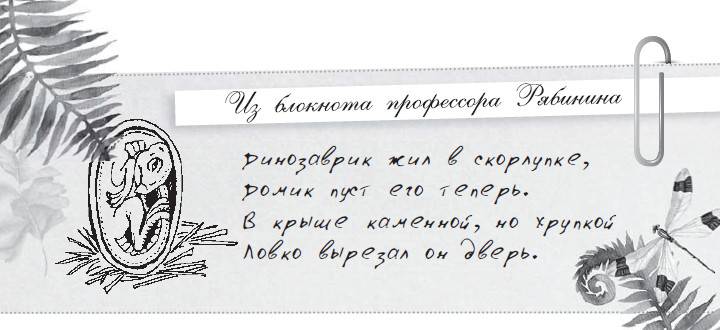 Из блокнота профессора Рябинина
Динозаврик жил в скорлупке,
Домик пуст его теперь.
В крыше каменной, но хрупкой
Ловко вырезал он дверь.